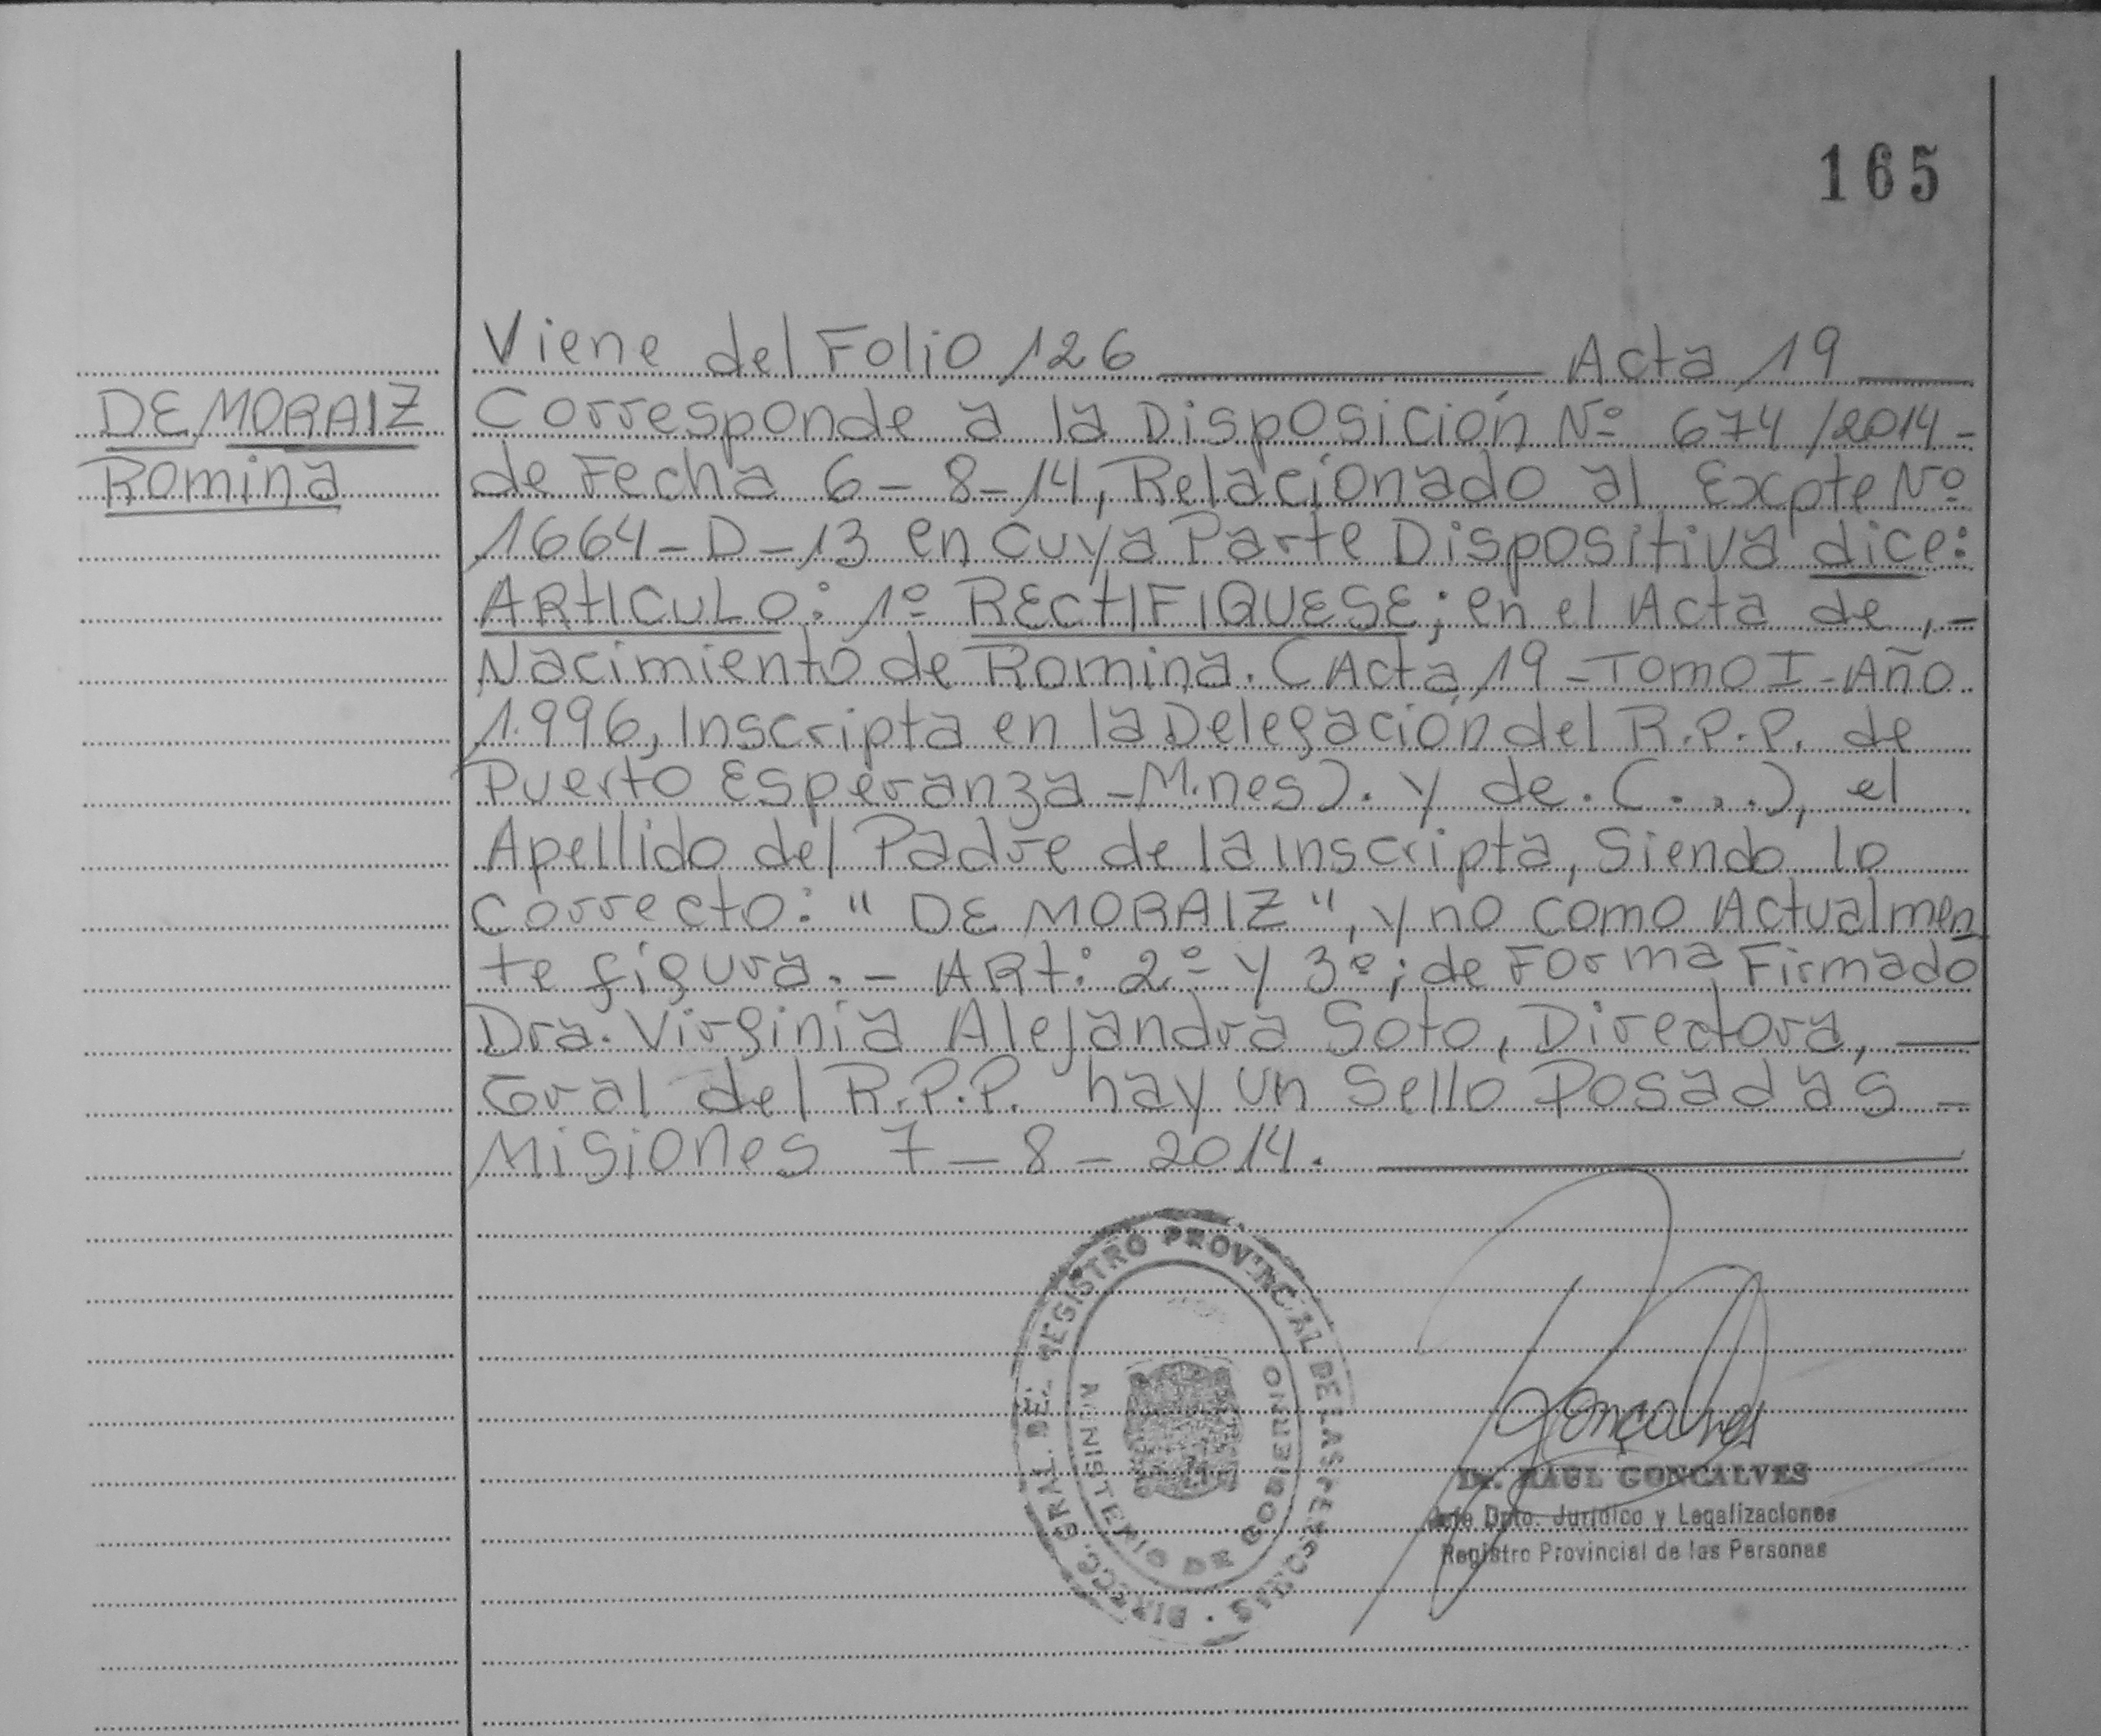 165
Viene del Folio 126 Acta 19
DE MORAIZ
Romina
Corresponde a la Disposición Nº 674/2014-
de Fecha 6-8-14, Relacionado al Excpte Nº
1664-D-13 en cuya Parte Dispositiva dice:
ARTICULO: 1º RECTIFIQUESE; en el Acta de,-
Nacimiento de Romina. (Acta 19-Tomo I-Año
1.996, Inscripta en la Delegación del R.P.P. de
Puerto Esperanza-M.nes). y de.(...), el
Apellido del Padre de la inscripta, Siendo lo
correcto: "DE MORAIZ", y no como Actualmen
te figura.- ARt: 2º y 3º; de Forma Firmado
Dra. Virginia Alejandra Soto, Directora,
Gral del R.P.P. hay un Sello Posadas-
Misiones 7-8-2014.
DIRECC. GRAL. DEL REGISTRO PROVINCIAL DE LAS PERSONAS
MINISTERIO DE GOBIERNO
Gonçalves
Dr. RAUL GONCALVES
Jefe Dpto. Jurídico y Legalizaciones
Registro Provincial de las Personas